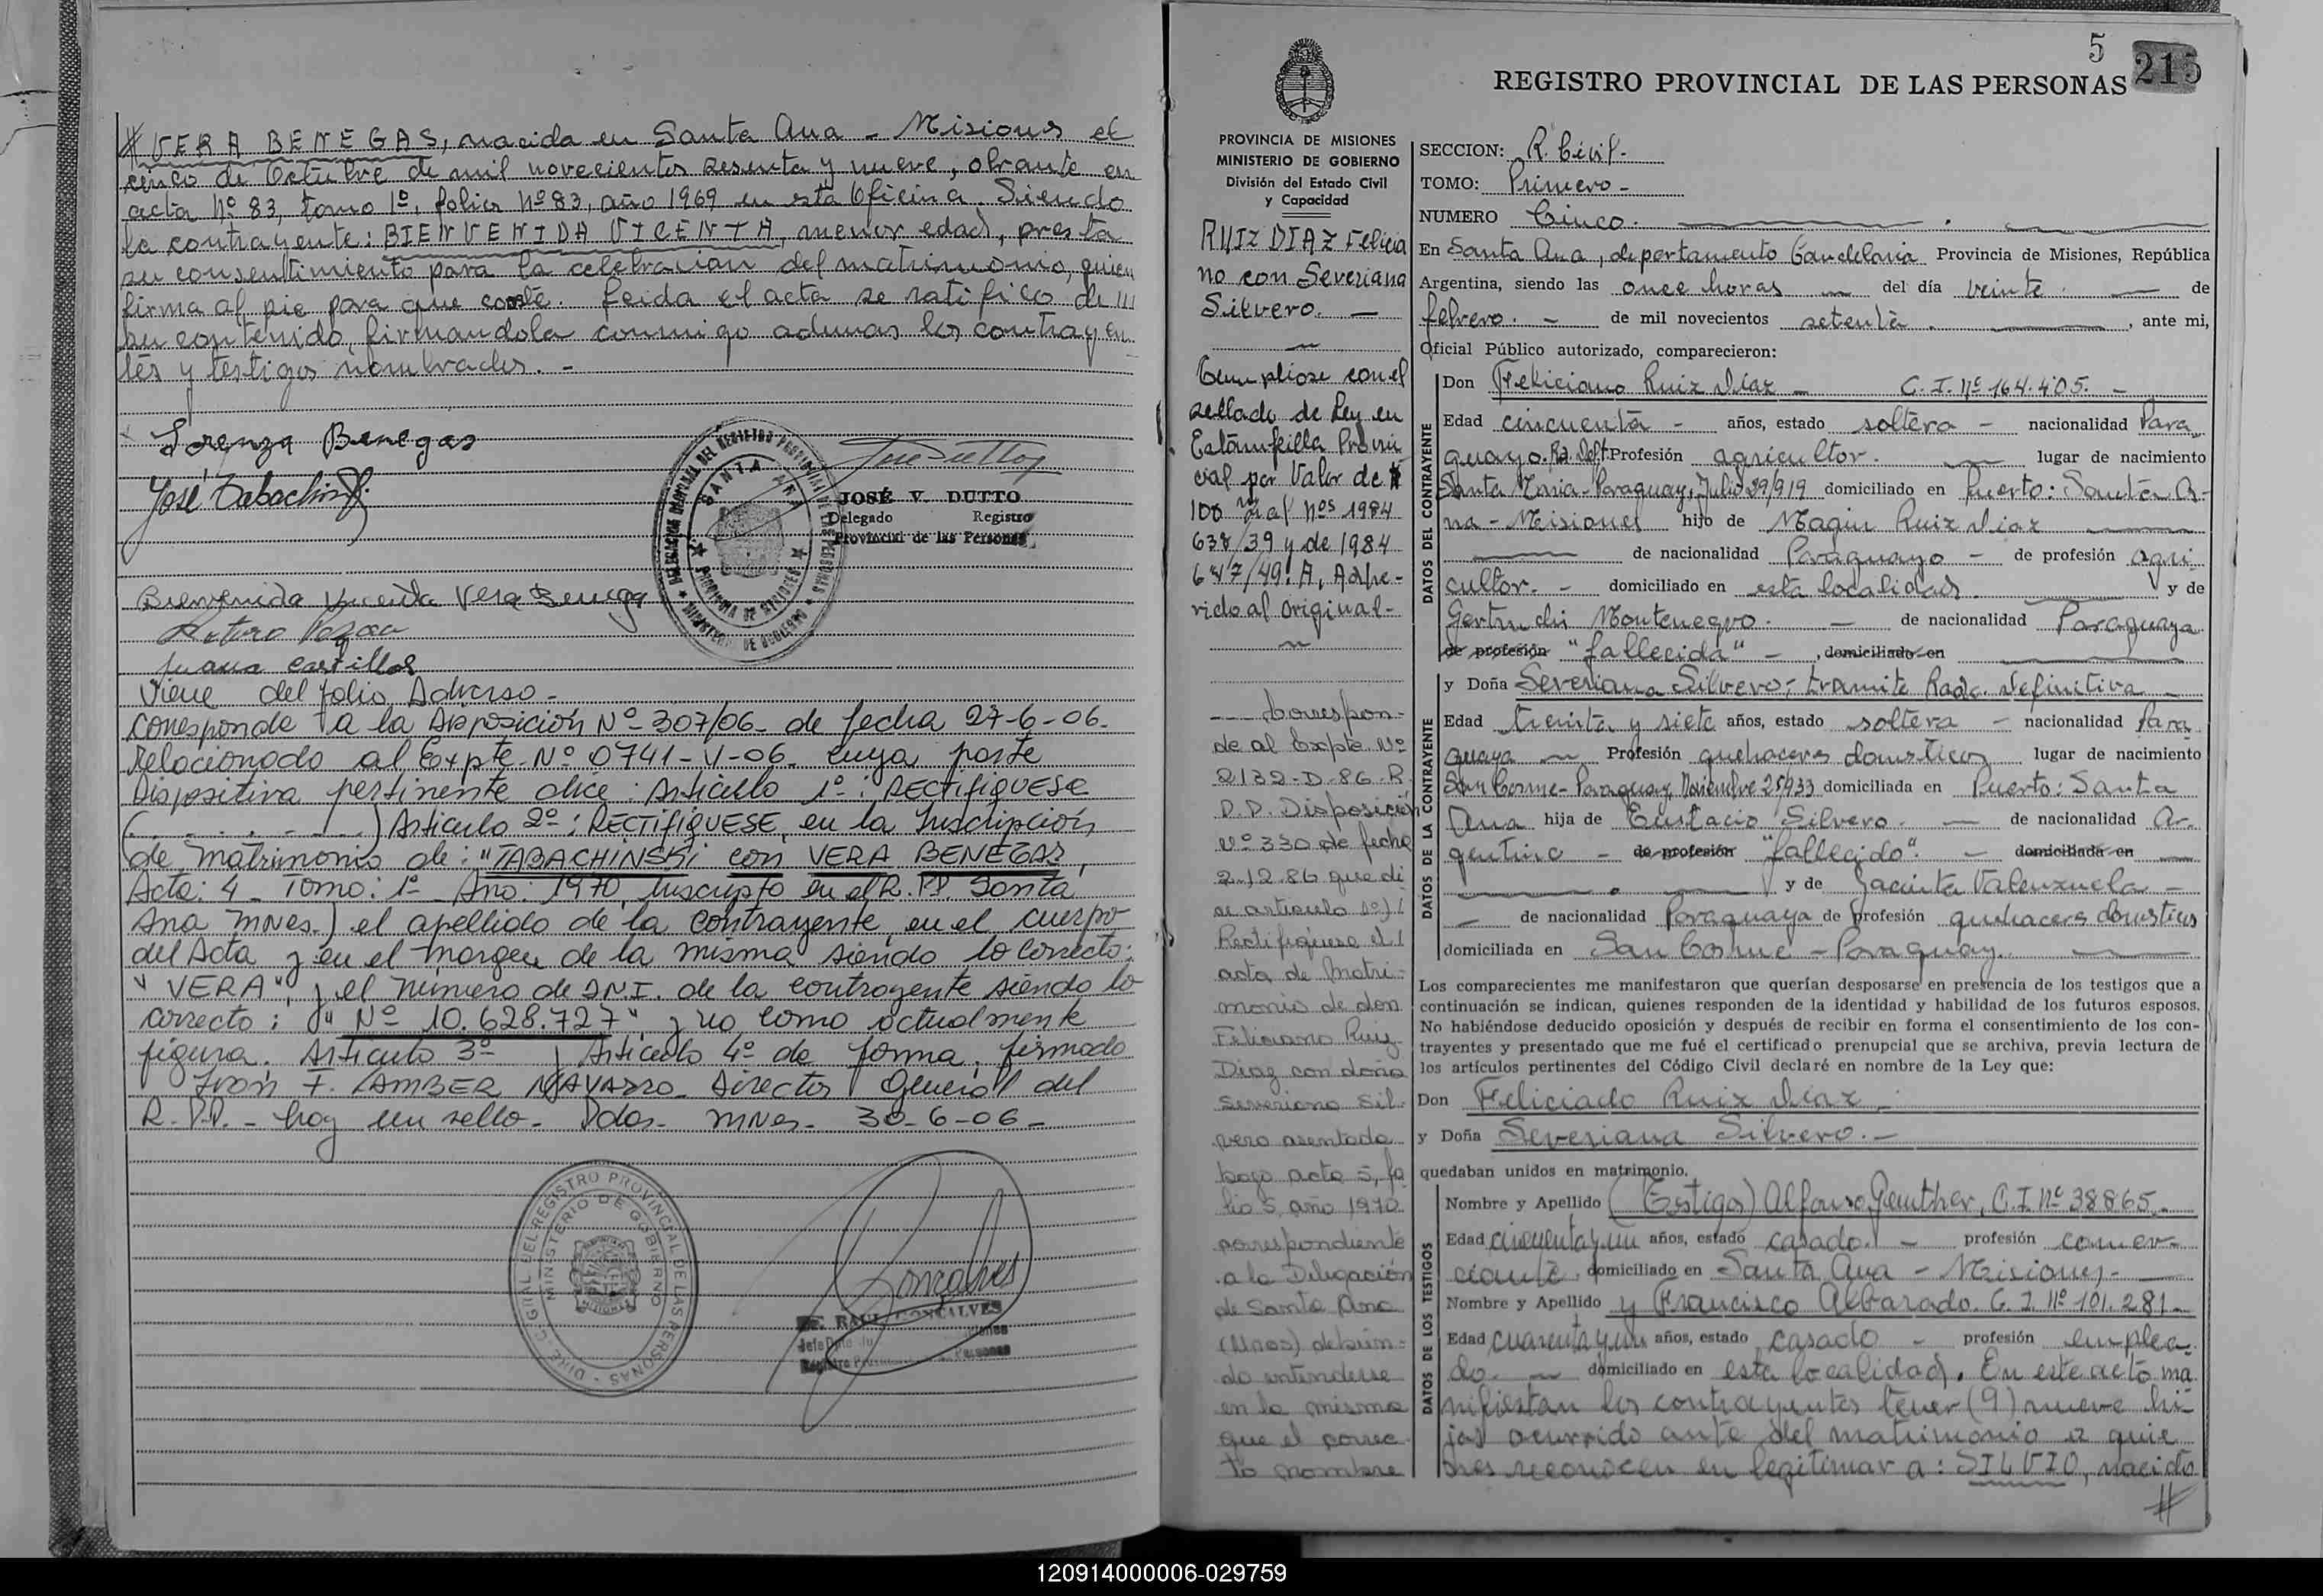 # VERA BENEGAS, nacida en Santa Ana - Misiones el
cinco de Octubre de mil novecientos sesenta y nueve, obrante en
acta Nº 83, tomo 1º, folio Nº 83, año 1969 en esta Oficina. Siendo
la contrayente: BIENVENIDA VICENTA, menor edad, presta
su consentimiento para la celebracion del matrimonio, quien
firma al pie para que conste. Leida el acta se ratifico de
su contenido, firmandola conmigo ademas los contrayen
tes y testigos nombrados. -
Lorenza Benegas
José Tabachinski
JOSÉ V. DUTTO
Delegado Registro
Provincial de las Personas
SANTA ANA
PROVINCIA DE MISIONES
MINISTERIO DE GOBIERNO
Bienvenida Vicenta Vera Benega
Arturo
Juana Casrillos
Viene del folio Adverso -
Corresponde a la Disposición Nº 307/06 - de fecha 27-6-06.
Relacionado al Expte. Nº 0741-V-06. cuya parte
Dispositiva pertinente dice: Articulo 1º: RECTIFIQUESE
(. . . . . .) Articulo 2º: RECTIFIQUESE, en la Inscripción
de matrimonio de: "TABACHINSKI con VERA BENEGAS,
Acta: 4 - Tomo: 1º - Año: 1970, Inscripto en el R.PP. Santa
Ana Mnes.) el apellido de la contrayente, en el cuerpo
del Acta y en el margen de la misma siendo lo correcto:
"VERA", y el número de D.N.I. de la contrayente siendo lo
correcto: "Nº 10.628.727", y no como actualmente
figura. Articulo 3º y Articulo 4º de forma. firmado
F. LAMBER NAVARRO - Director General del
R.P.P. - hay un sello - Pdas. Mnes. 30-6-06 -
DIR. GRAL. DEL REGISTRO PROVINCIAL DE LAS PERSONAS
MINISTERIO DE GOBIERNO
MISIONES
Goncalves
RAUL GONCALVES
5
215
REGISTRO PROVINCIAL DE LAS PERSONAS
PROVINCIA DE MISIONES
MINISTERIO DE GOBIERNO
División del Estado Civil
y Capacidad
RUIZ DIAZ Felicia
no con Severiana
Silvero. -
Cumpliose con el
sellado de Ley en
Estampilla Provin
cial por Valor de $
100 m/n al Nos 1984
638/39 y de 1984
647/49. A, Adhe-
rido al original -
--- Correspon-
de al Expte. Nº
2132-D-86-R.
P.P. Disposición
Nº 330 de fecha
2.12.86 que di
ce articulo 1º) !
Rectifiquese el !
acta de Matri-
monio de don
Feliciano Ruiz
Diaz con doña
Severiana Sil-
vero asentada
bajo acta 5, fo
lio 5, año 1970
correspondiente
a la Delegación
de Santa Ana
(Mnes) debien-
do entenderse
en la misma
que el correc
to nombre
SECCION: R. Civil -
TOMO: Primero -
NUMERO Cinco.
En Santa Ana, departamento Candelaria Provincia de Misiones, República
Argentina, siendo las once horas del día veinte de
febrero. - de mil novecientos setenta. , ante mi,
Oficial Público autorizado, comparecieron:
DATOS DEL CONTRAYENTE
Don Feliciano Ruiz Diaz - C.I. Nº 164.405. -
Edad cincuenta - años, estado soltero - nacionalidad Para
guayo. Ra. Def. Profesión agricultor. lugar de nacimiento
Santa Maria - Paraguay, Julio 29/919 domiciliado en Puerto: Santa A-
na - Misiones hijo de Magin Ruiz Diaz
de nacionalidad Paraguayo - de profesión agri
cultor. - domiciliado en esta localidad. y de
Gertrudi Montenegro. - de nacionalidad Paraguaya
de profesión "fallecida" - , domiciliado en
DATOS DE LA CONTRAYENTE
y Doña Severiana Silvero; tramite Radc. definitiva -
Edad treinta y siete años, estado soltera - nacionalidad Para
guaya Profesión quehaceres domesticos lugar de nacimiento
San Cosme - Paraguay, Noviembre 25/933 domiciliada en Puerto: Santa
Ana hija de Eustacio Silvero. - de nacionalidad Ar.
gentino - de profesión "fallecido". - domiciliada en
y de Jacinta Valenzuela -
de nacionalidad Paraguaya de profesión quehaceres domesticos
domiciliada en San Cosme - Paraguay.
Los comparecientes me manifestaron que querían desposarse en presencia de los testigos que a
continuación se indican, quienes responden de la identidad y habilidad de los futuros esposos.
No habiéndose deducido oposición y después de recibir en forma el consentimiento de los con-
trayentes y presentado que me fué el certificado prenupcial que se archiva, previa lectura de
los artículos pertinentes del Código Civil declaré en nombre de la Ley que:
Don Feliciado Ruiz Diaz
y Doña Severiana Silvero. -
quedaban unidos en matrimonio.
DATOS DE LOS TESTIGOS
Nombre y Apellido (Testigos) Alfonso Genther, C.I. Nº 38865. -
Edad cincuenta y un años, estado casado. - profesión comer-
ciante. domiciliado en Santa Ana - Misiones. -
Nombre y Apellido y Francisco Albarado. C.I. Nº 101.281 -
Edad cuarenta y un años, estado casado - profesión emplea-
do. - domiciliado en esta localidad. En este acto ma
nifiestan los contrayentes tener (9) nueve hi-
jos ocurrido ante del matrimonio a quie
nes reconocen en legitimar a: SILVIO, nacido
#
120914000006-029759